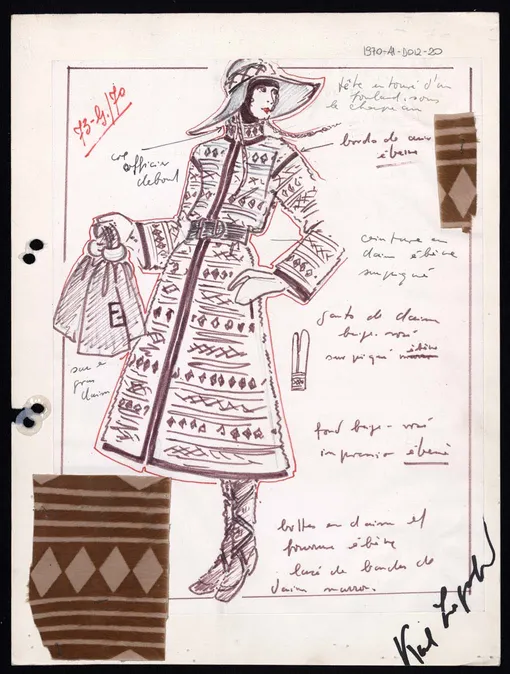 1970-A-D012-20
73-H/70
tête entouré d'un
foulard, sous
le chapeau
col
officier
debout
bords de cuir
ébène
ceinture en
daim ébène
surpiqué
gants de daim
beige-rosé
surpiqué ébène
E
sac en
daim
fond beige-rosé
impression ébène
bottes en daim et
fourrure ébène
lacé de bandes de
daim marron.